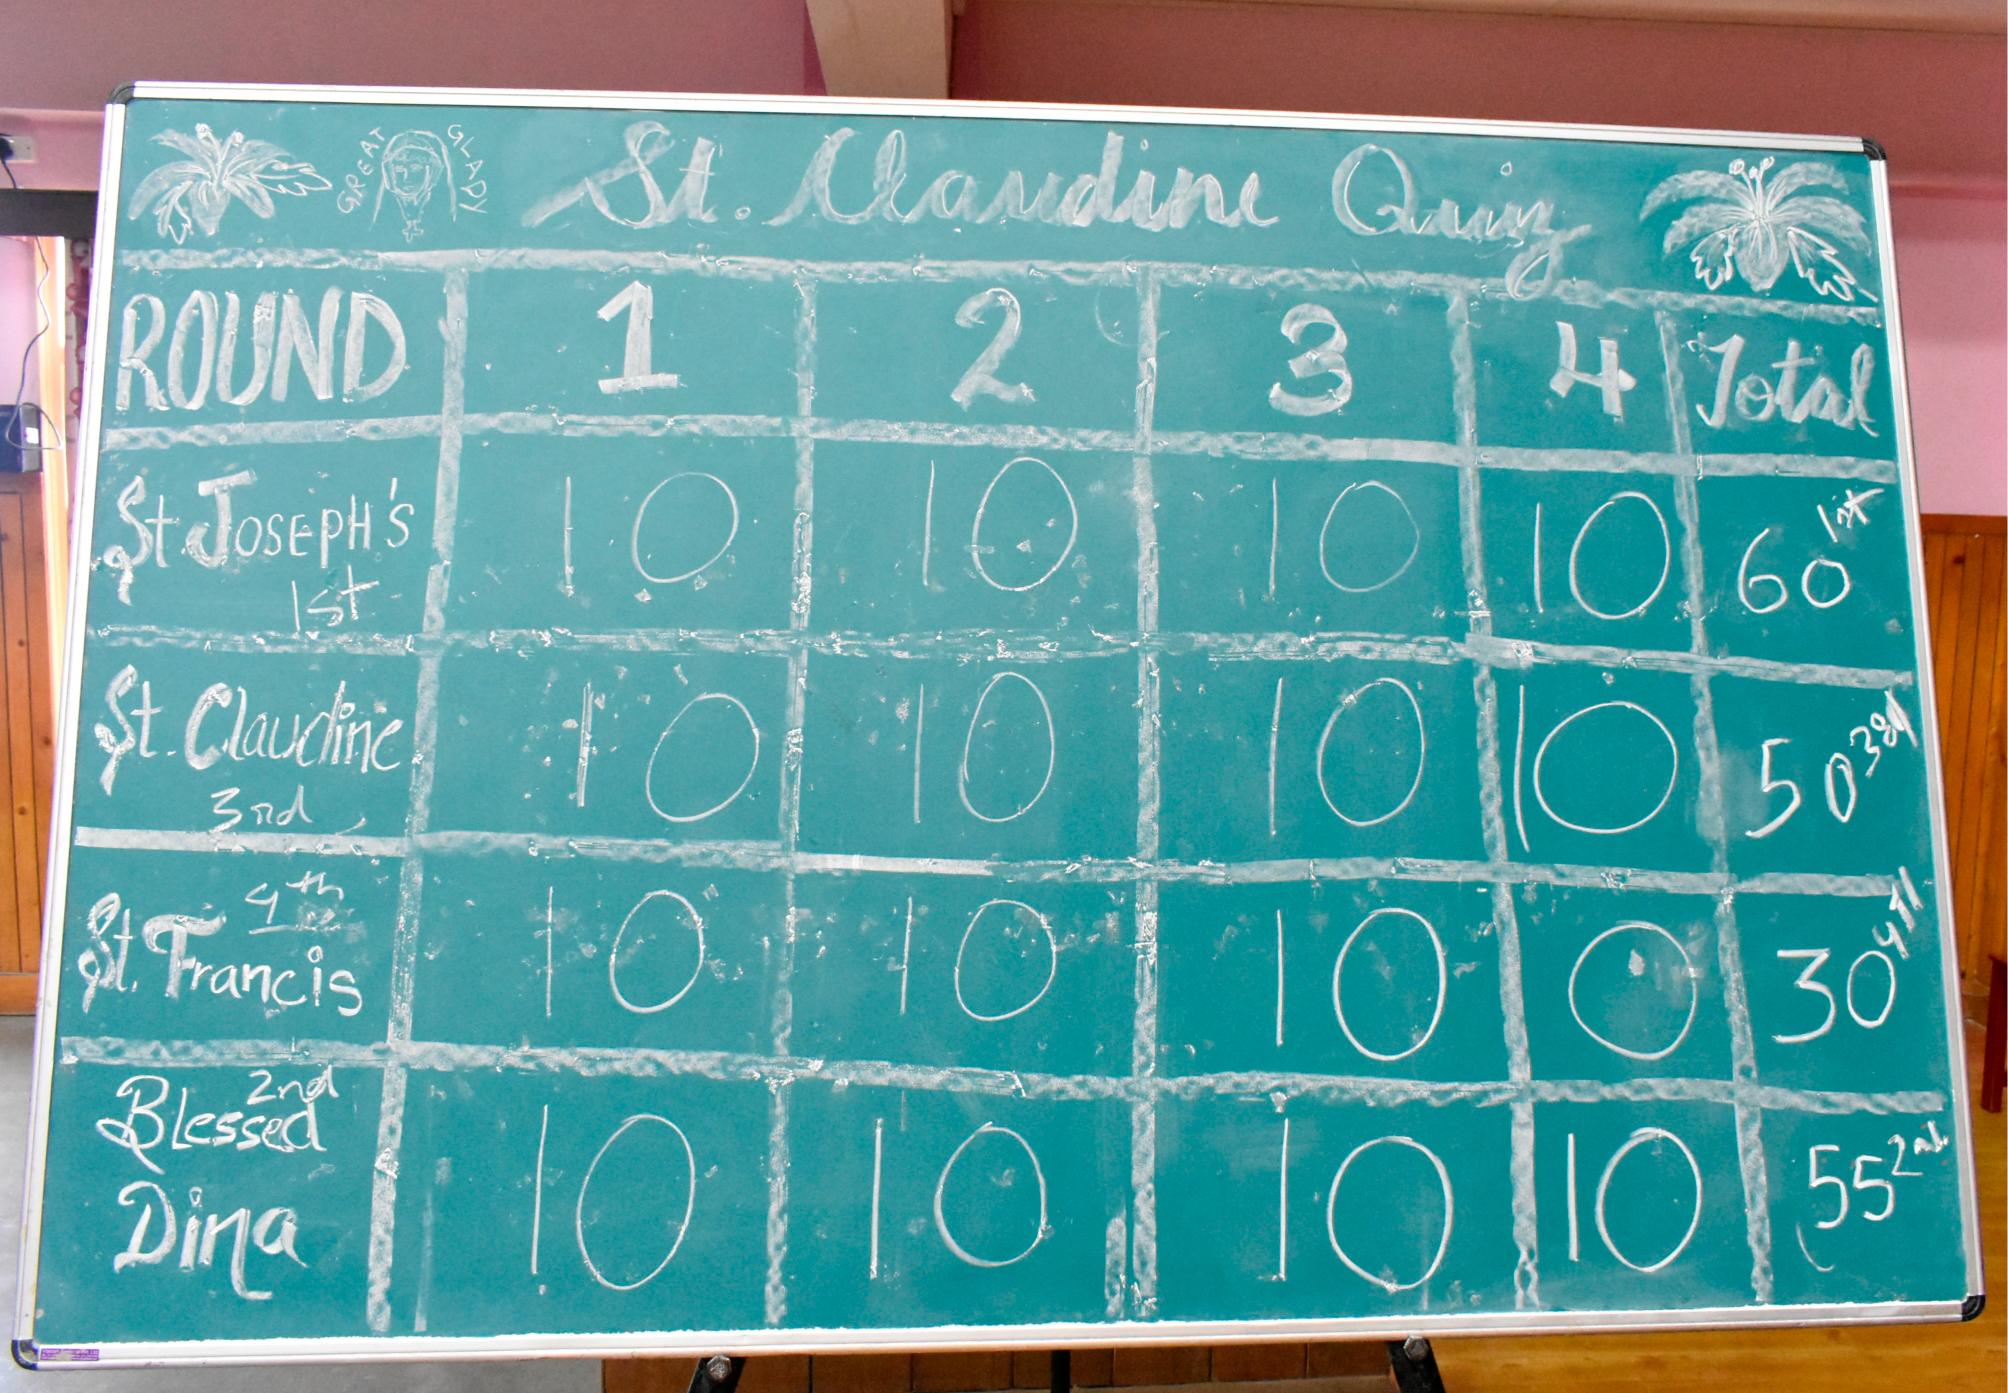 GREAT GLADY St. Claudine Quiz
ROUND 1 2 3 4 Total
St. JOSEPH'S 10 10 10 10 60 1st
1st
St. Claudine 10 10 10 10 50 3rd
3rd
4th
St. Francis 10 10 10 0 30 4TH
2nd
Blessed
Dina 10 10 10 10 55 2nd